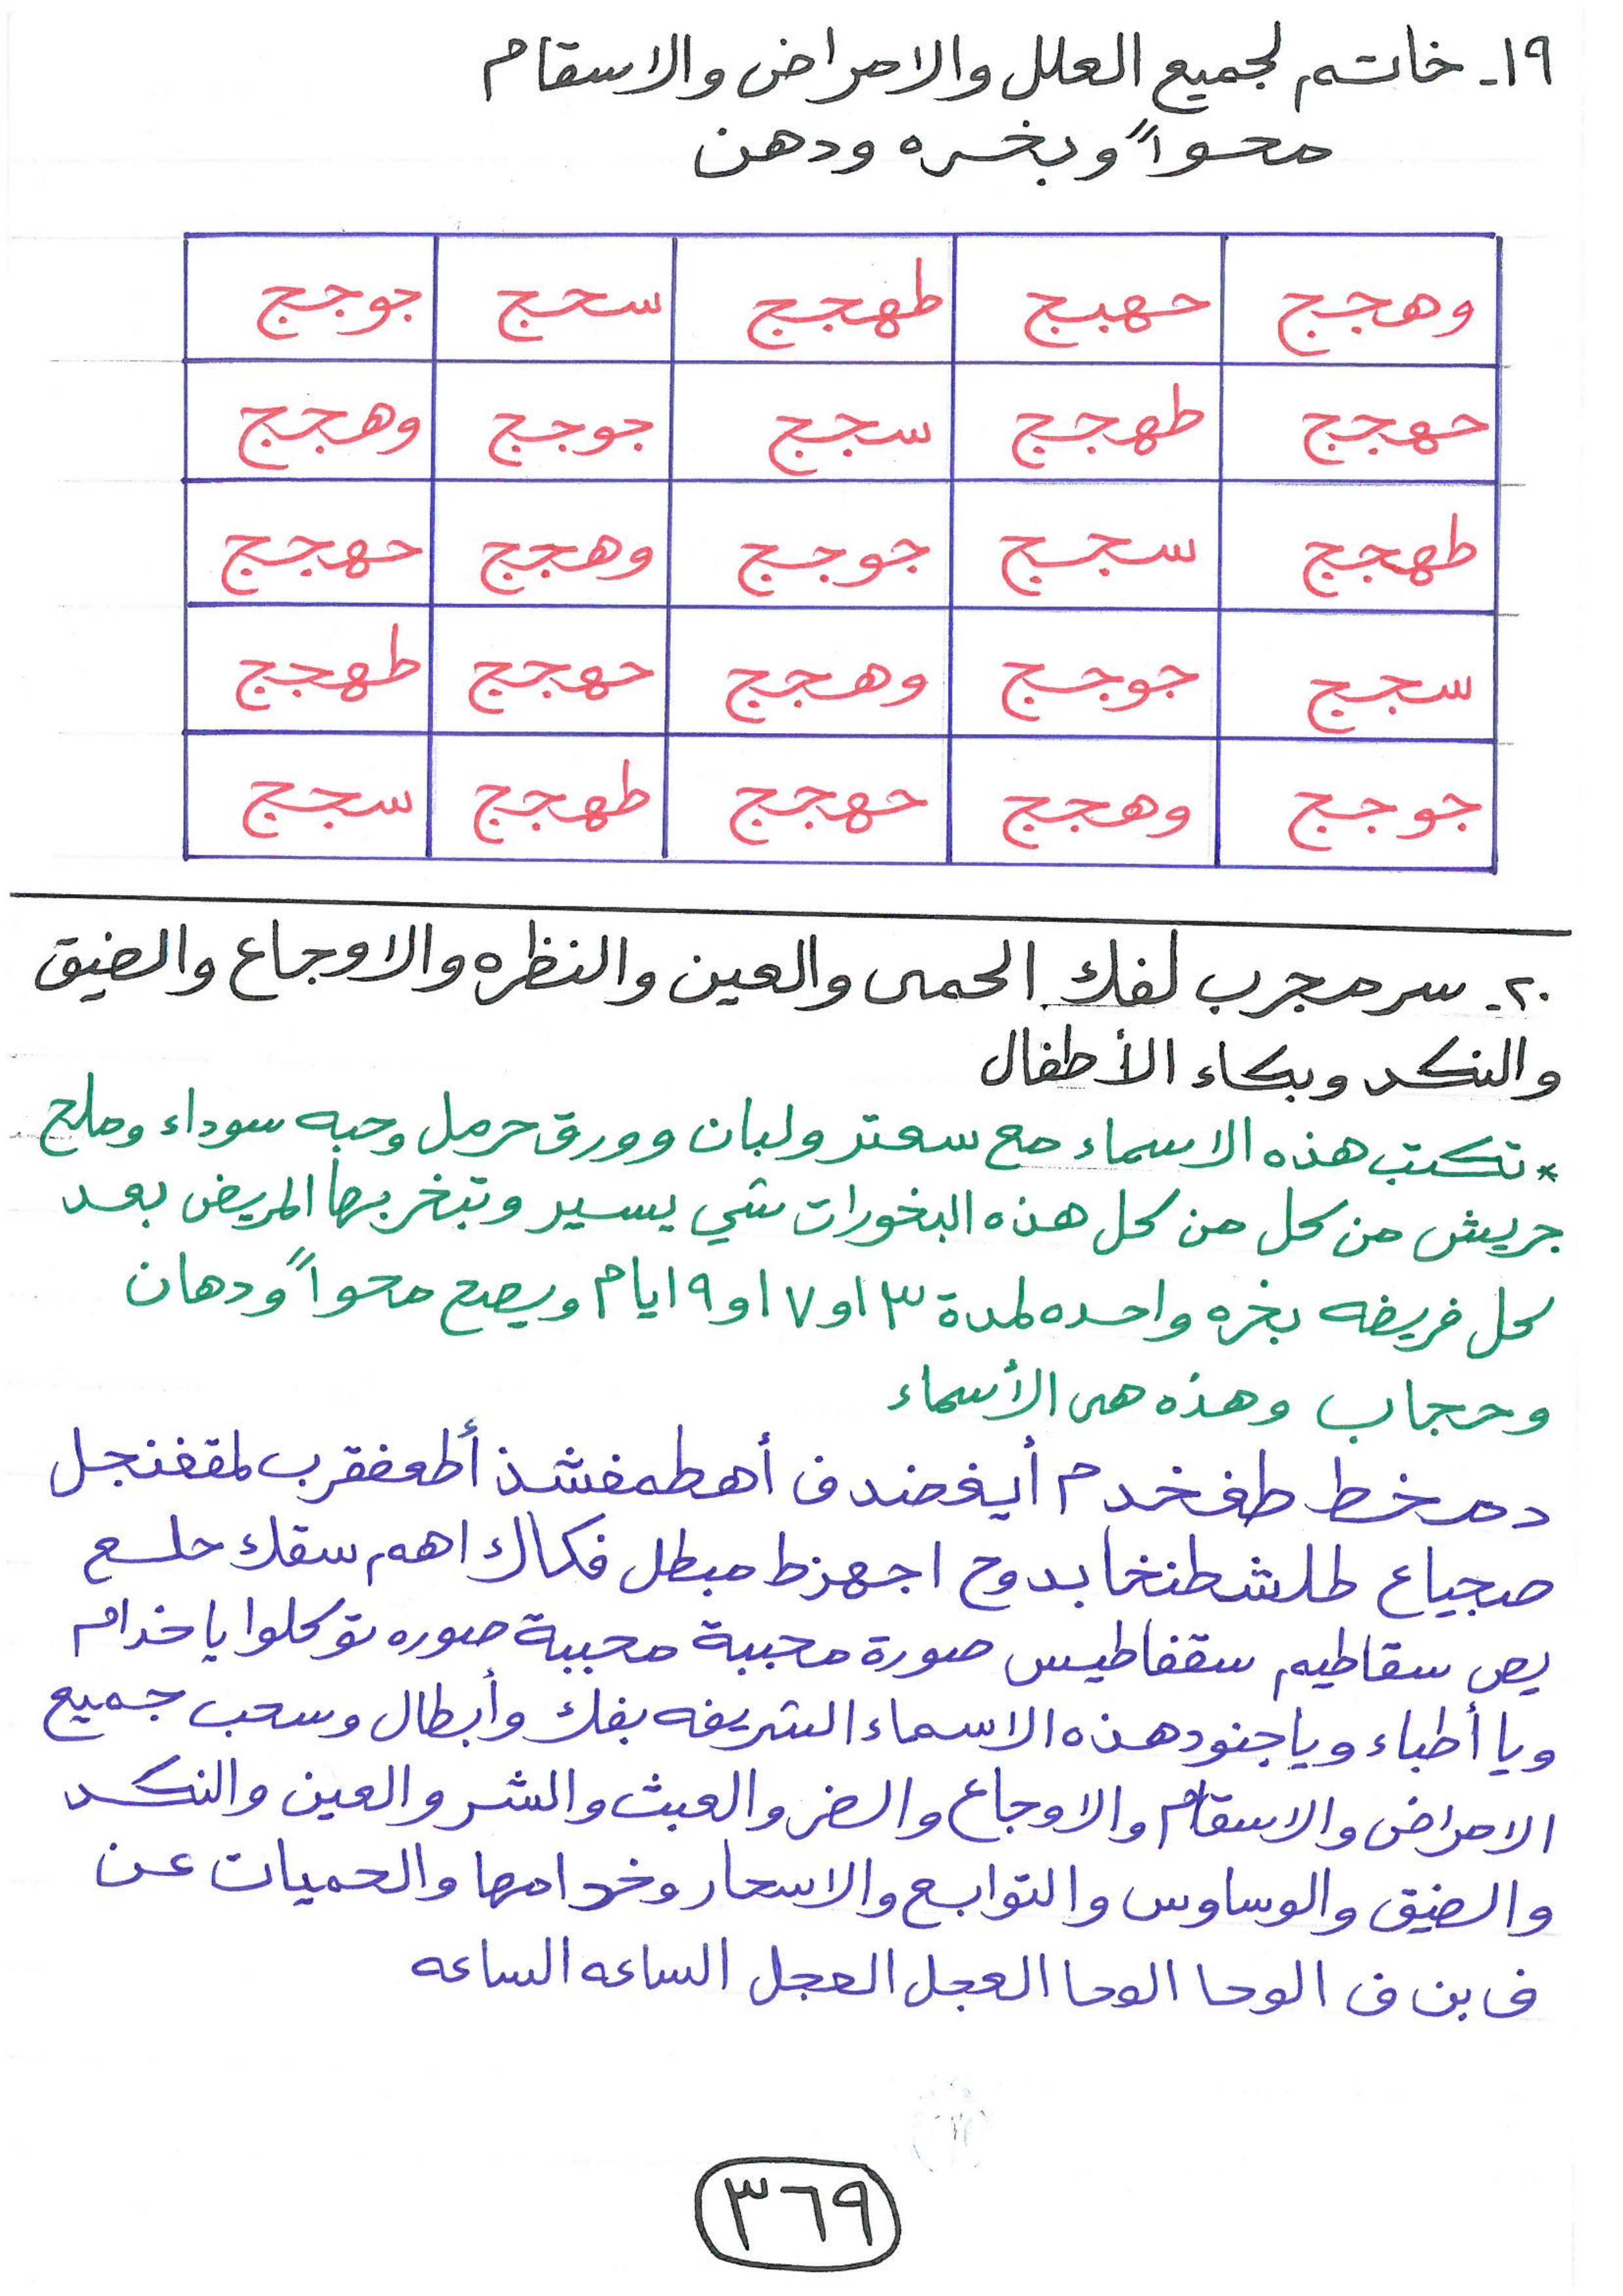 ١٩- خاتم لجميع العلل والامراض والاسقام
محواً وبخره ودهن
وهجج حهبج طهجج سحج جوجج
حهجج طهجج سجج جوجج وهجج
طهجج سجج جوجج وهجج حهجج
سجج جوجج وهجج حهجج طهجج
جوجج وهجج حهجج طهجج سجج
٢٠- سر مجرب لفك الحمى والعين والنظره والاوجاع والضيق
والنكد وبكاء الأطفال
* تكتب هذه الاسماء مع سعتر ولبان وورق حرمل وحبه سوداء وملح
جريش من كل من كل هذه البخورات شي يسير وتبخر بها المريض بعد
كل فريضه بخره واحده لمدة ٣ او ٧ او ٩ ايام ويصح محواً ودهان
وحجاب وهذه هى الأسماء
دمخط طفخدم أيغضندف أهطمفشذ أطعفقرب لمقفنجل
صجياع طلشطنخا بدوح اجهزط مبطل فكاك اهم سقك حلع
يص سقاطيم سقفاطيس صورة محببة محببة صوره توكلوا ياخدام
ويا أطباء وياجنود هذه الاسماء الشريفه بفك وأبطال وسحب جميع
الامراض والاسقام والاوجاع والضر والعبث والشر والعين والنكد
والضيق والوساوس والتوابع والاسحار وخدامها والحميات عن
ف بن ف الوحا الوحا العجل العجل الساعه الساعه
٣٦٩